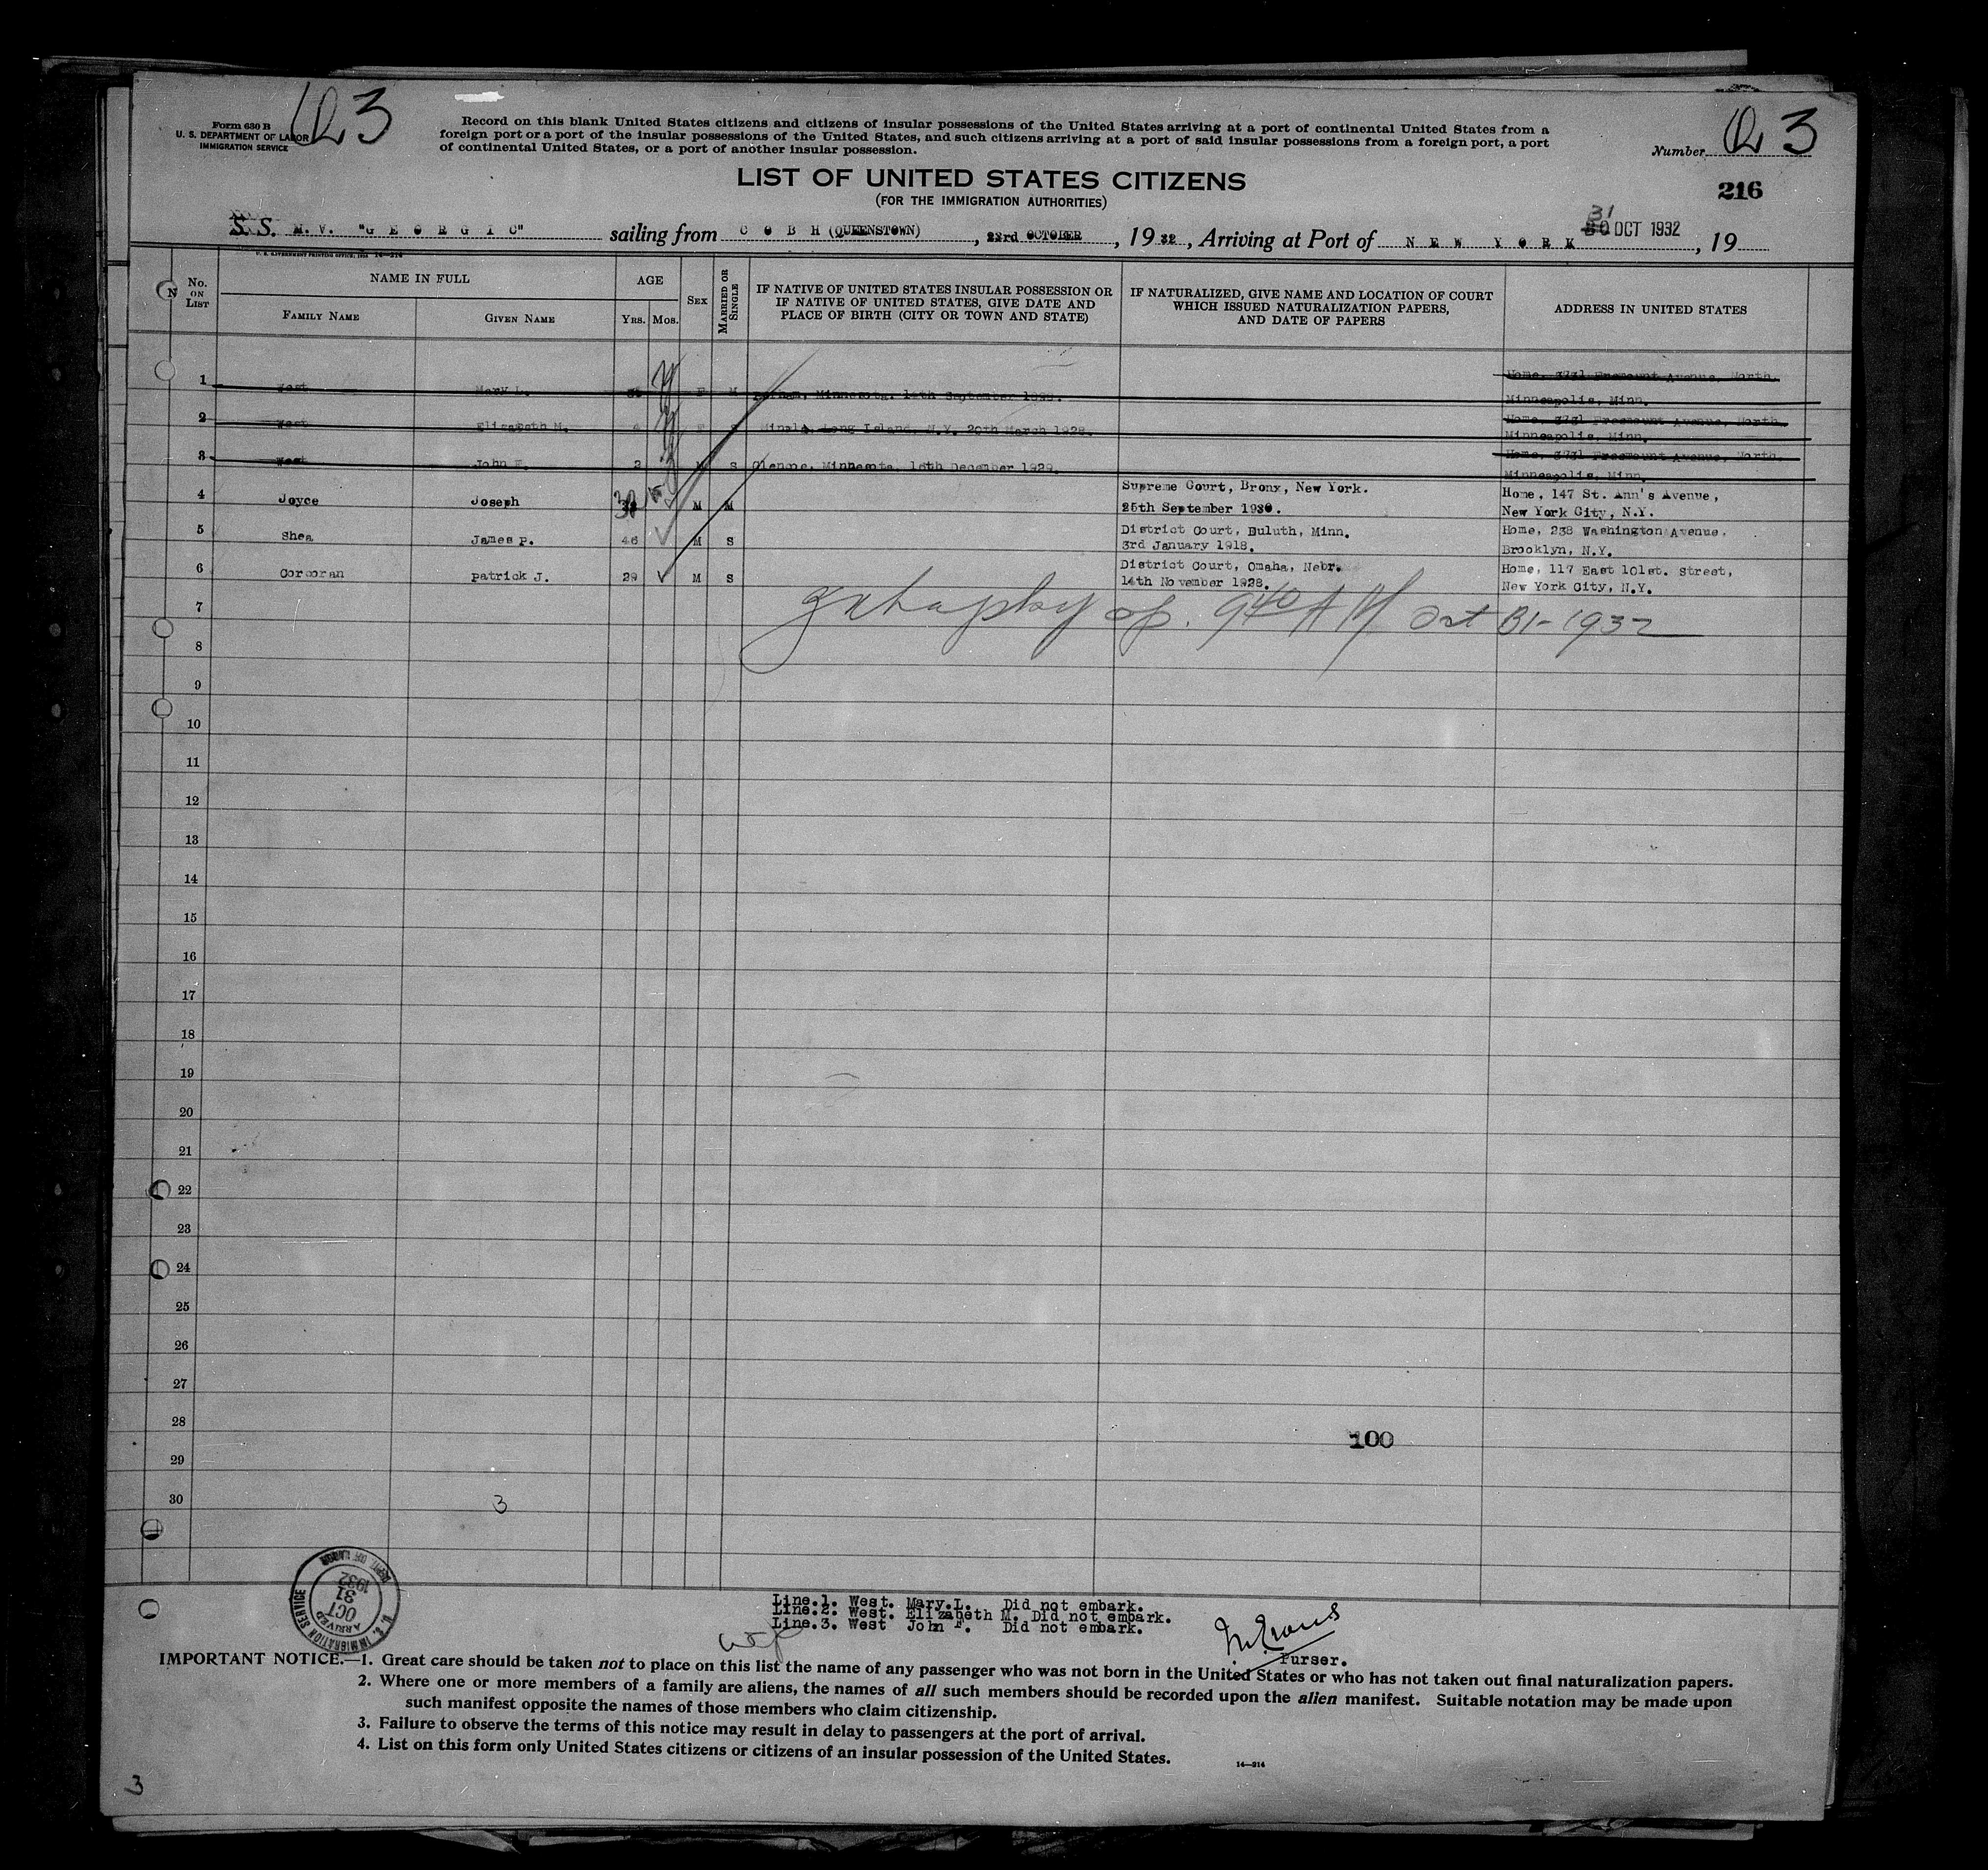 Form 630 B
U. S. DEPARTMENT OF LABOR
IMMIGRATION SERVICE
3
Record on this blank United States citizens and citizens of insular possessions of the United States arriving at a port of continental United States from a
foreign port or a port of the insular possessions of the United States, and such citizens arriving at a port of said insular possessions from a foreign port, a port
of continental United States, or a port of another insular possession.
Number 3
LIST OF UNITED STATES CITIZENS
(FOR THE IMMIGRATION AUTHORITIES)
216
S. S. M. V. "G E O R G I C" sailing from C O B H (QUEENSTOWN), 23rd OCTOBER, 19 32, Arriving at Port of N E W Y O R K 31 30 OCT 1932, 19
U. S. GOVERNMENT PRINTING OFFICE: 14—214
No. ON LIST
NAME IN FULL
FAMILY NAME
GIVEN NAME
AGE
YRS.
MOS.
SEX
MARRIED OR SINGLE
IF NATIVE OF UNITED STATES INSULAR POSSESSION OR
IF NATIVE OF UNITED STATES, GIVE DATE AND
PLACE OF BIRTH (CITY OR TOWN AND STATE)
IF NATURALIZED, GIVE NAME AND LOCATION OF COURT
WHICH ISSUED NATURALIZATION PAPERS,
AND DATE OF PAPERS
ADDRESS IN UNITED STATES
1 West Mary L. F M Minnesota. 14th September Home, 3731 Fremount Avenue, North,
Minneapolis, Minn.
2 West Elizabeth M. 4 F Long Island, N.Y. 20th March 1928. Home, 3731 Fremount Avenue, North
Minneapolis, Minn.
3 West John F. 2 M S Glencoe, Minnesota, 16th December 1929. Home, 3731 Fremount Avenue, North.
Minneapolis, Minn.
4 Joyce Joseph M M Supreme Court, Bronx, New York. Home, 147 St. Ann's Avenue,
25th September 1930. New York City, N.Y.
5 Shea James P. 46 M S District Court, Duluth, Minn. Home, 238 Washington Avenue,
3rd January 1918. Brooklyn, N.Y.
6 Corcoran Patrick J. 29 M S District Court, Omaha, Nebr. Home, 117 East 101st. Street,
14th November 1928. New York City, N.Y.
7
9 40 A M Oct 31-1932
8
9
10
11
12
13
14
15
16
17
18
19
20
21
22
23
24
25
26
27
28
100
29
30
3
U. S. IMMIGRATION SERVICE
DEPT. OF LABOR
ARRIVED
OCT
31
1932
Line.1. West. Mary.L. Did not embark.
Line.2. West. Elizabeth M. Did not embark.
Line.3. West John F. Did not embark.
Purser.
IMPORTANT NOTICE.—1. Great care should be taken not to place on this list the name of any passenger who was not born in the United States or who has not taken out final naturalization papers.
2. Where one or more members of a family are aliens, the names of all such members should be recorded upon the alien manifest. Suitable notation may be made upon
such manifest opposite the names of those members who claim citizenship.
3. Failure to observe the terms of this notice may result in delay to passengers at the port of arrival.
4. List on this form only United States citizens or citizens of an insular possession of the United States.
14—214
3